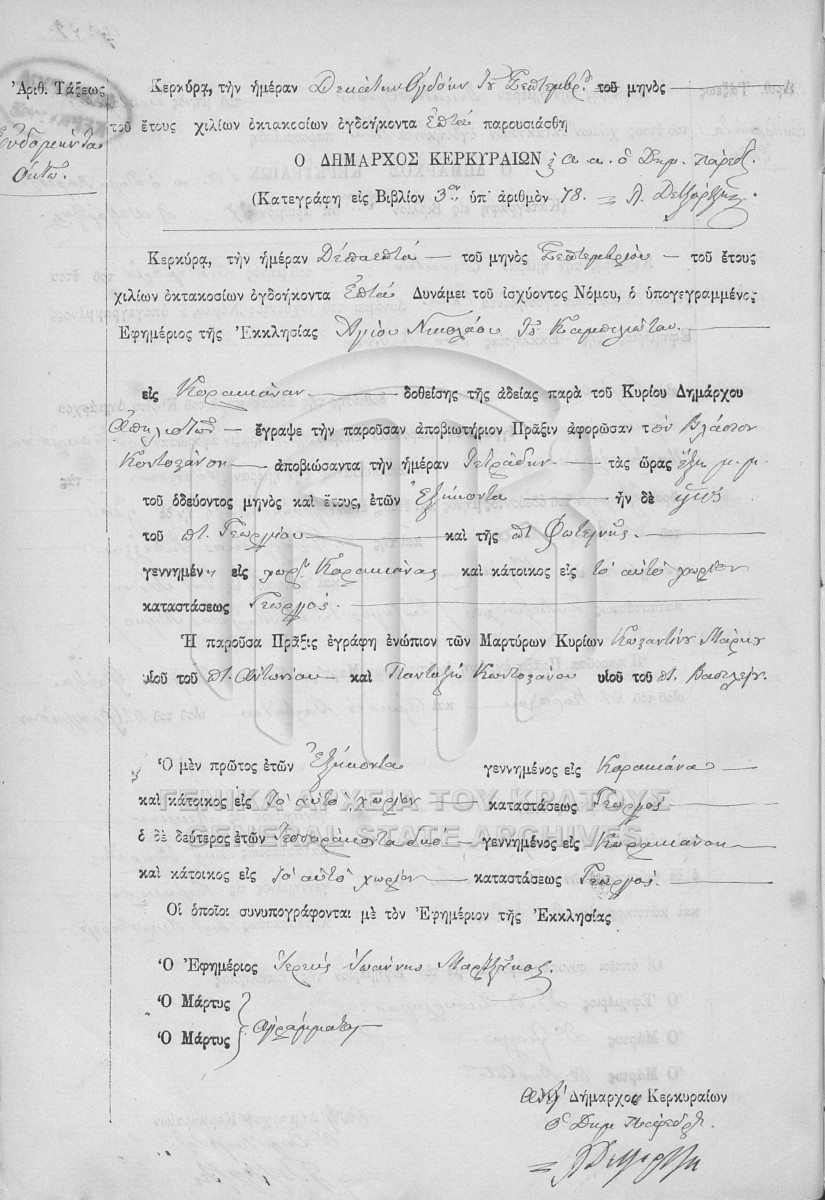 Ἀριθ. Τάξεως
Ἑβδομήκοντα
Ὀκτώ.
Κερκύρᾳ, τὴν ἡμέραν Δεκάτην Ὀγδόην τοῦ Σεπτεμβρ. τοῦ μηνὸς
τοῦ ἔτους χιλίων ὀκτακοσίων ὀγδοήκοντα Ἑπτά παρουσιάσθη
Ὁ ΔΗΜΑΡΧΟΣ ΚΕΡΚΥΡΑΙΩΝ κ α. α. ὁ Δημ. πάρεδ.
(Κατεγράφη εἰς Βιβλίον 3ον ὑπ' ἀριθμὸν 78.
Κερκύρᾳ, τὴν ἡμέραν Δέκα επτά τοῦ μηνὸς Σεπτεμβρίου τοῦ ἔτους
χιλίων ὀκτακοσίων ὀγδοήκοντα Ἑπτά Δυνάμει τοῦ ἰσχύοντος Νόμου, ὁ ὑπογεγραμμένος
Ἐφημέριος τῆς Ἐκκλησίας Ἁγίου Νικολάου τοῦ Καμπιλιώτου.
εἰς Κορακιάναν δοθείσης τῆς ἀδείας παρὰ τοῦ Κυρίου Δημάρχου
ἔγραψε τὴν παροῦσαν ἀποβιωτήριον Πρᾶξιν ἀφορῶσαν τὸν Βλάσιον
Κοντοζάνον ἀποβιώσαντα τὴν ἡμέραν Τετράδην τὰς ὥρας ἕξη μ.μ.
τοῦ ὁδεύοντος μηνὸς καὶ ἔτους, ἐτῶν Ἑξήκοντα ἦν δὲ ὑιὸς
τοῦ πτ. Γεωργίου καὶ τῆς πτ Φωτεινῆς.
γεννημένη εἰς χωρ. Κορακιάνας καὶ κάτοικος εἰς τὸ αὐτὸ χωρίον
καταστάσεως Γεωργός.
Ἡ παροῦσα Πρᾶξις ἐγράφη ἐνώπιον τῶν Μαρτύρων Κυρίων Κωσαντίνου Μάρκου
υἱοῦ τοῦ πτ. Αντωνίου καὶ Πανταζῆ Κοντοζάνου υἱοῦ τοῦ πτ. Βασιλείου.
Ὁ μὲν πρῶτος ἐτῶν Ἑξήκοντα γεννημένος εἰς Κορακιάναν
καὶ κάτοικος εἰς τὸ αὐτὸ χωρίον καταστάσεως Γεωργός
ὁ δὲ δεύτερος ἐτῶν Τεσσαράκοντα δύο γεννημένος εἰς Κορακιάναν
καὶ κάτοικος εἰς τὸ αὐτὸ χωρίον καταστάσεως Γεωργός.
Οἱ ὁποῖοι συνυπογράφονται μὲ τὸν Ἐφημέριον τῆς Ἐκκλησίας
Ὁ Ἐφημέριος Ἱερεὺς Ἰωάννης
Ὁ Μάρτυς
Ὁ Μάρτυς } Ἀγράμματοι
Δήμαρχος Κερκυραίων
ὁ Δημ Πάρεδρ.
ΓΕΝΙΚΑ ΑΡΧΕΙΑ ΤΟΥ ΚΡΑΤΟΥΣ
GENERAL STATE ARCHIVES